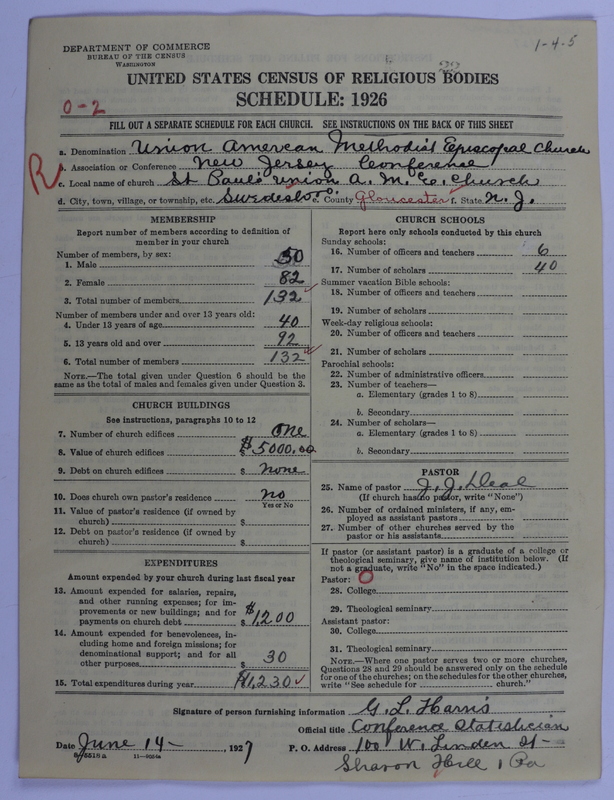 1-4-5
DEPARTMENT OF COMMERCE
BUREAU OF THE CENSUS
WASHINGTON
UNITED STATES CENSUS OF RELIGIOUS BODIES
SCHEDULE: 1926
0-2
FILL OUT A SEPARATE SCHEDULE FOR EACH CHURCH. SEE INSTRUCTIONS ON THE BACK OF THIS SHEET
R
a. Denomination Union American Methodist Episcopal Church
b. Association or Conference New Jersey Conference
c. Local name of church St Paul's Union A. M. E. Church
d. City, town, village, or township, etc. Swedesboro e. County Gloucester f. State N. J.
MEMBERSHIP
Report number of members according to definition of
member in your church
Number of members, by sex:
1. Male 50
2. Female 82
3. Total number of members 132
Number of members under and over 13 years old:
4. Under 13 years of age 40
5. 13 years old and over 92
6. Total number of members 132
NOTE.—The total given under Question 6 should be the
same as the total of males and females given under Question 3.
CHURCH BUILDINGS
See instructions, paragraphs 10 to 12
7. Number of church edifices One
8. Value of church edifices $5000.00
9. Debt on church edifices $ None
10. Does church own pastor's residence No
Yes or No
11. Value of pastor's residence (if owned by
church) $
12. Debt on pastor's residence (if owned by
church) $
EXPENDITURES
Amount expended by your church during last fiscal year
13. Amount expended for salaries, repairs,
and other running expenses; for im-
provements or new buildings; and for
payments on church debt $1,200
14. Amount expended for benevolences, in-
cluding home and foreign missions; for
denominational support; and for all
other purposes $ 30
15. Total expenditures during year $1,230
CHURCH SCHOOLS
Report here only schools conducted by this church
Sunday schools:
16. Number of officers and teachers 6
17. Number of scholars 40
Summer vacation Bible schools:
18. Number of officers and teachers
19. Number of scholars
Week-day religious schools:
20. Number of officers and teachers
21. Number of scholars
Parochial schools:
22. Number of administrative officers
23. Number of teachers—
a. Elementary (grades 1 to 8)
b. Secondary
24. Number of scholars—
a. Elementary (grades 1 to 8)
b. Secondary
PASTOR
25. Name of pastor J. J. Deal
(If church has no pastor, write "None")
26. Number of ordained ministers, if any, em-
ployed as assistant pastors
27. Number of other churches served by the
pastor or his assistants
If pastor (or assistant pastor) is a graduate of a college or
theological seminary, give name of institution below. (If
not a graduate, write "No" in the space indicated.)
Pastor: O
28. College
29. Theological seminary
Assistant pastor:
30. College
31. Theological seminary
NOTE.—Where one pastor serves two or more churches,
Questions 28 and 29 should be answered only on the schedule
for one of the churches; on the schedules for the other churches,
write "See schedule for church."
Signature of person furnishing information G. L. Harris
Official title Conference Statistician
Date June 14-, 1927 P. O. Address 100 W. Linden St-
Sharon Hill, Pa
8-5518a 11-9054a